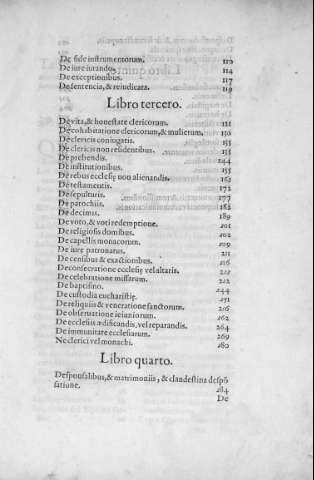 De fide instrumentorum. 110
De iure iurando. 114
De exceptionibus. 117
De sententia, & reiudicata. 119
Libro tercero.
De vita, & honestate clericorum. 131
De cohabitatione clericorum, & mulierum. 150
De clericis coniugatis. 153
De clericis non residentibus. 155
De prebendis. 144
De institutionibus. 155
De rebus ecclesię non alienandis. 162
De testamentis. 172
De sepulturis. 177
De parochiis. 182
De decimis. 189
De voto, & voti redemptione. 201
De religiosis domibus. 202
De capellis monacorum. 209
De iure patronatus. 211
De censibus & exactionibus. 216
De consecratione ecclesię vel altaris. 221
De celebratione missarum. 212
De baptismo. 244
De custodia eucharistię. 251
De reliquiis & veneratione sanctorum. 256
De obseruatione ieiuniorum. 262
De ecclesiis ædificandis, vel reparandis. 264
De immunitate ecclesiarum. 269
Ne clerici vel monachi. 280
Libro quarto.
De sponsalibus, & matrimoniis, & clandestina despõ
satione. 284
De